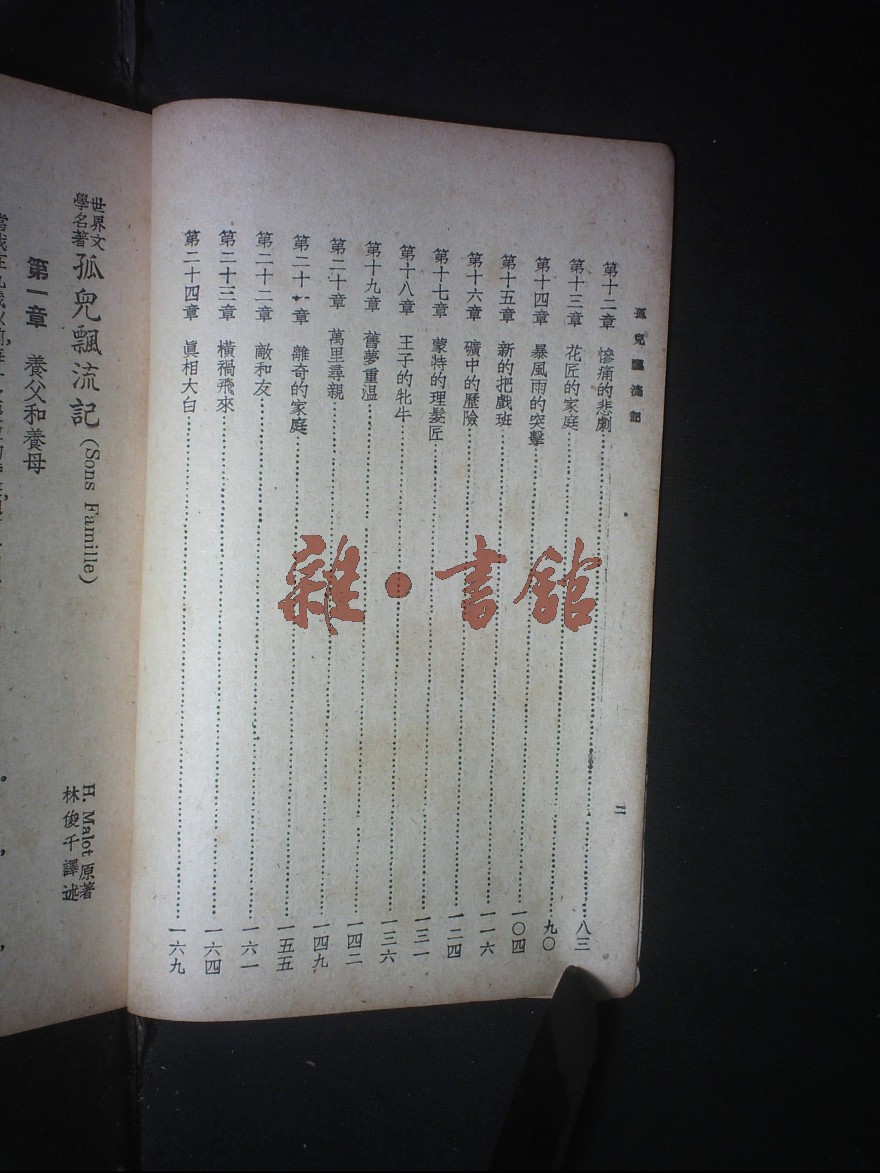 孤兒飄流記
第十二章　慘痛的悲劇……八三
第十三章　花匠的家庭……九〇
第十四章　暴風雨的突擊……一〇四
第十五章　新的把戲班……一一六
第十六章　礦中的歷險……一二四
第十七章　蒙特的理髮匠……一三一
第十八章　王子的牝牛……一三六
第十九章　舊夢重溫……一四二
第二十章　萬里尋親……一四九
第二十一章　離奇的家庭……一五五
第二十二章　敵和友……一六一
第二十三章　橫禍飛來……一六四
第二十四章　眞相大白……一六九
二
雜・書館
世界文學名著 孤兒飄流記 (Sons Famille)
H. Malot 原著
林俊千譯述
第一章　養父和養母